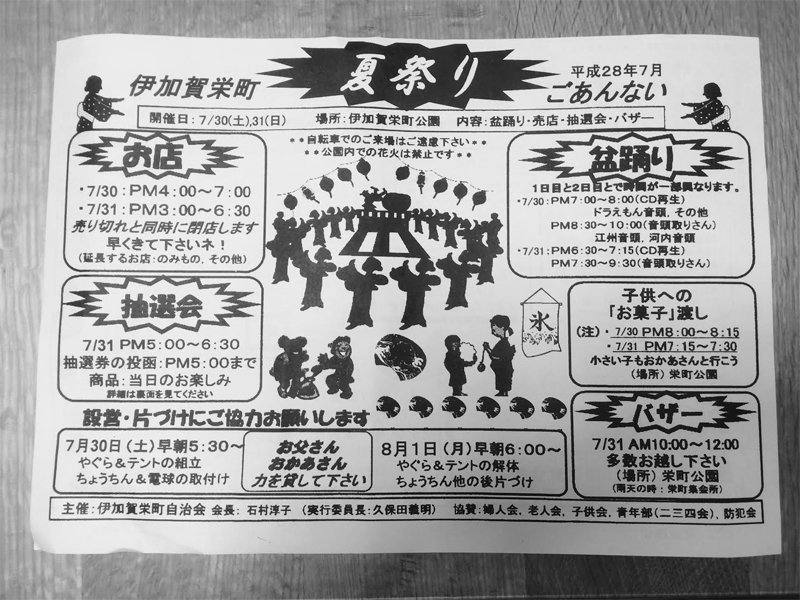 伊加賀栄町
夏祭り
平成28年7月
ごあんない
開催日：7/30(土),31(日)　場所：伊加賀栄町公園　内容：盆踊り・売店・抽選会・バザー
＊＊自転車でのご来場はご遠慮下さい＊＊
＊＊公園内での花火は禁止です＊＊
お店
・7/30：PM4：00～7：00
・7/31：PM3：00～6：30
売り切れと同時に閉店します
早くきて下さいネ！
(延長するお店：のみもの，その他)
盆踊り
1日目と2日目とで時間が一部異なります。
・7/30：PM7：00～8：00(CD再生)
ドラえもん音頭，その他
PM8：30～10：00(音頭取りさん)
江州音頭，河内音頭
・7/31：PM6：30～7：15(CD再生)
PM7：30～9：30(音頭取りさん)
抽選会
7/31 PM5：00～6：30
抽選券の投函：PM5：00まで
商品：当日のお楽しみ
詳細は裏面を見てください
氷
子供への
「お菓子」渡し
(注)・7/30 PM8：00～8：15
・7/31 PM7：15～7：30
小さい子もおかあさんと行こう
(場所) 栄町公園
設営・片づけにご協力お願いします
7月30日(土)早朝5：30～
やぐら＆テントの組立
ちょうちん＆電球の取付け
お父さん
おかあさん
力を貸して下さい
8月1日(月)早朝6：00～
やぐら＆テントの解体
ちょうちん他の後片づけ
バザー
7/31 AM10：00～12：00
多数お越し下さい
(場所) 栄町公園
(雨天の時：栄町集会所)
主催：伊加賀栄町自治会 会長：石村淳子　(実行委員長：久保田義明)　協賛：婦人会，老人会，子供会，青年部(二三四会)，防犯会